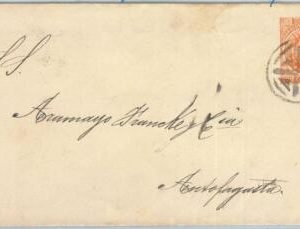 S.S.
Aramayo Francke y Cia
Antofagasta.